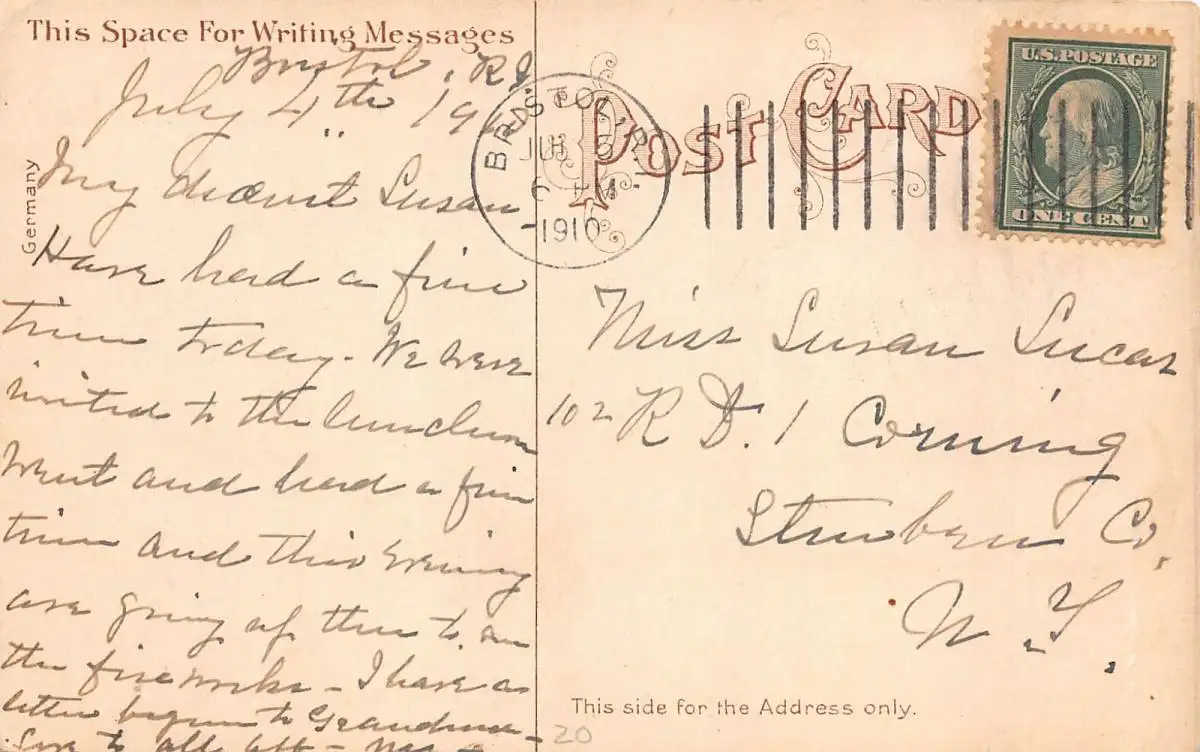 This Space For Writing Messages
Bristol, R.I.
July 4th 19
My dearest Susan
Have had a fine
time today. We were
invited to the luncheon
went and had a fine
time and this evening
are going up there to see
the fireworks - I have a
letter begun to Grandma -
Love to all
Germany
POST CARD
BRISTOL, R.I.
6 PM
1910
U.S. POSTAGE
ONE CENT
Miss Susan Lucas
102 R D. 1 Corning
Steuben Co,
N.Y.
This side for the Address only.
20